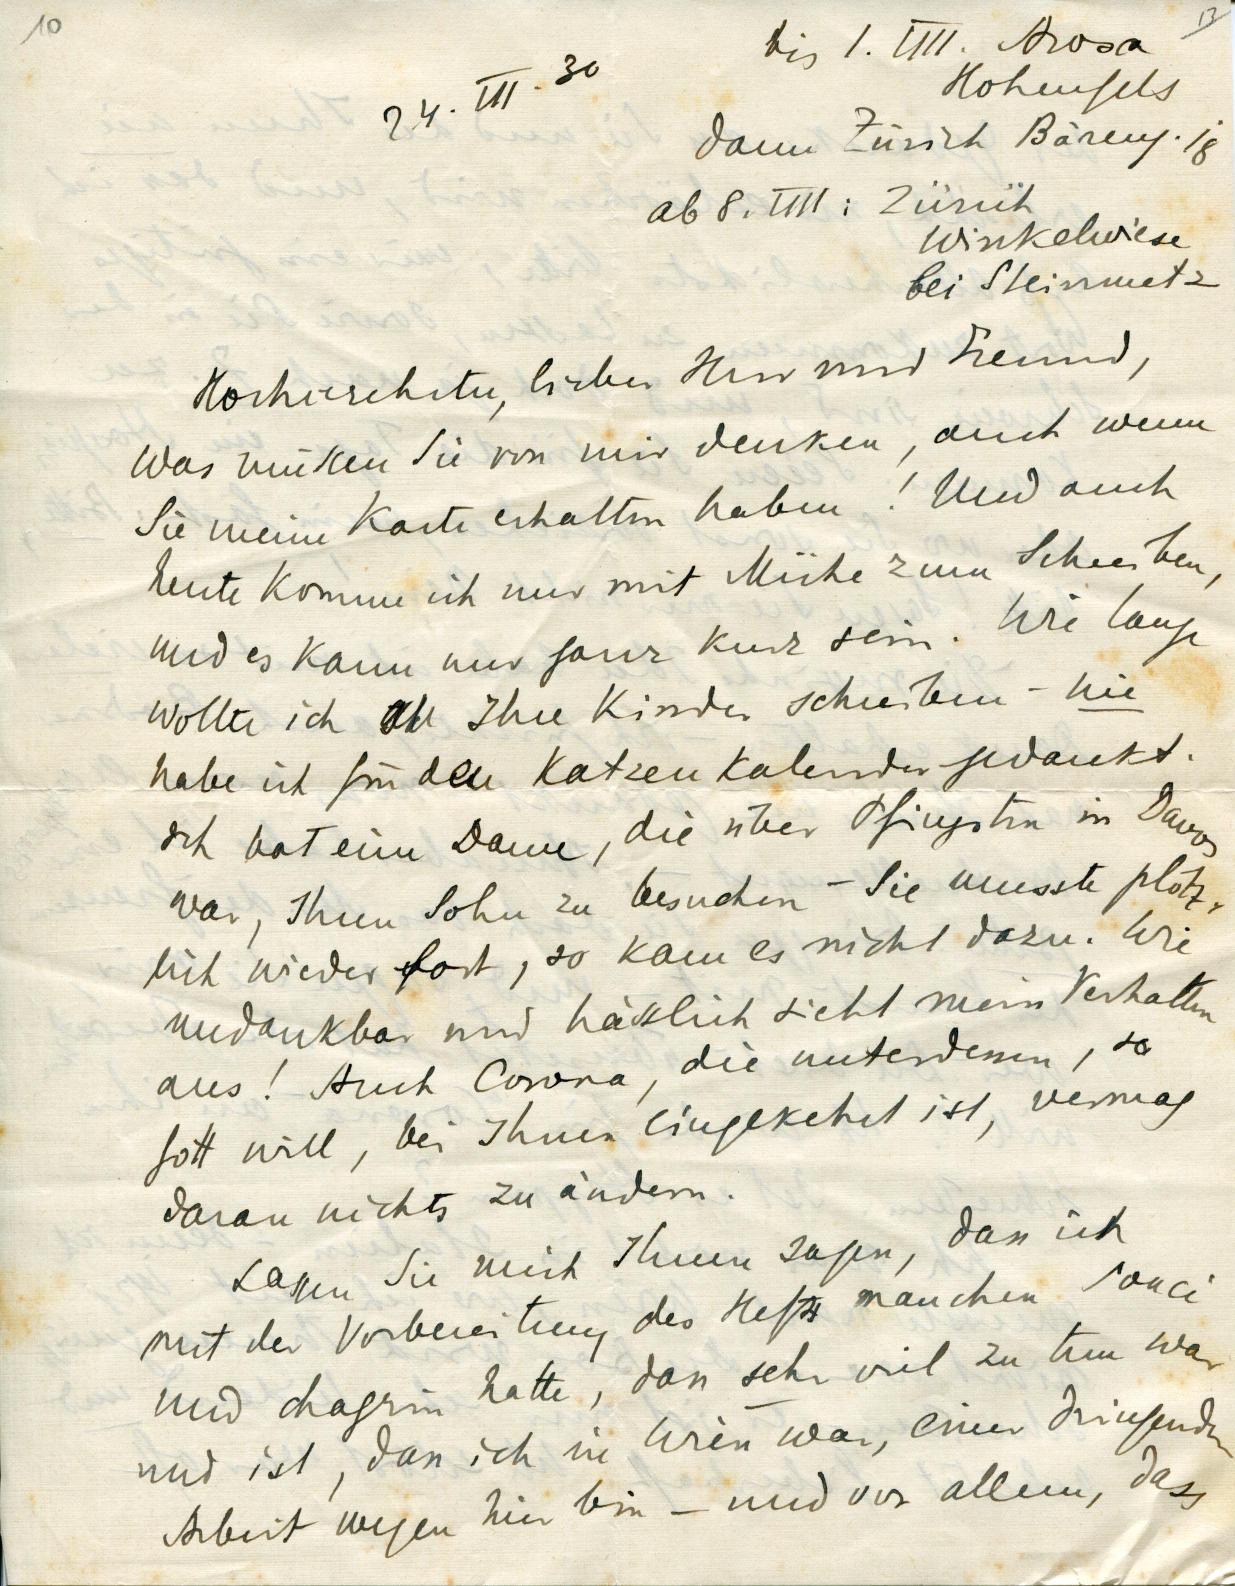 10
13
bis 1. VIII. Arosa
Hohenfels
24. VII. 30
dann Zürich Bäreng. 18
ab 8. VIII: Zürich
Winkelwiese
bei Steinmetz
Hochverehrter, lieber Herr und Freund,
was müssen Sie von mir denken, auch wenn
Sie meine Karte erhalten haben! Und auch
heute komme ich nur mit Mühe zum Schreiben,
und es kann nur ganz kurz sein. Wie lange
wollte ich Ihre Kinder schreiben – nie
habe ich für den Katzenkalender gedankt.
Ich bat eine Dame, die über Pfingsten in Davos
war, Ihren Sohn zu besuchen – Sie musste plötz-
lich wieder fort, so kam es nicht dazu. Wie
undankbar und hässlich sieht mein Verhalten
aus! Auch Corona, die unterdessen, so
Gott will, bei Ihnen eingekehrt ist, vermag
daran nichts zu ändern.
Lassen Sie mich Ihnen sagen, dass ich
mit der Vorbereitung des Hefts manchen souci
und chagrin hatte, dass sehr viel zu tun war
und ist, dass ich in Wien war, einer dringenden
Arbeit wegen hier bin – und vor allem, dass